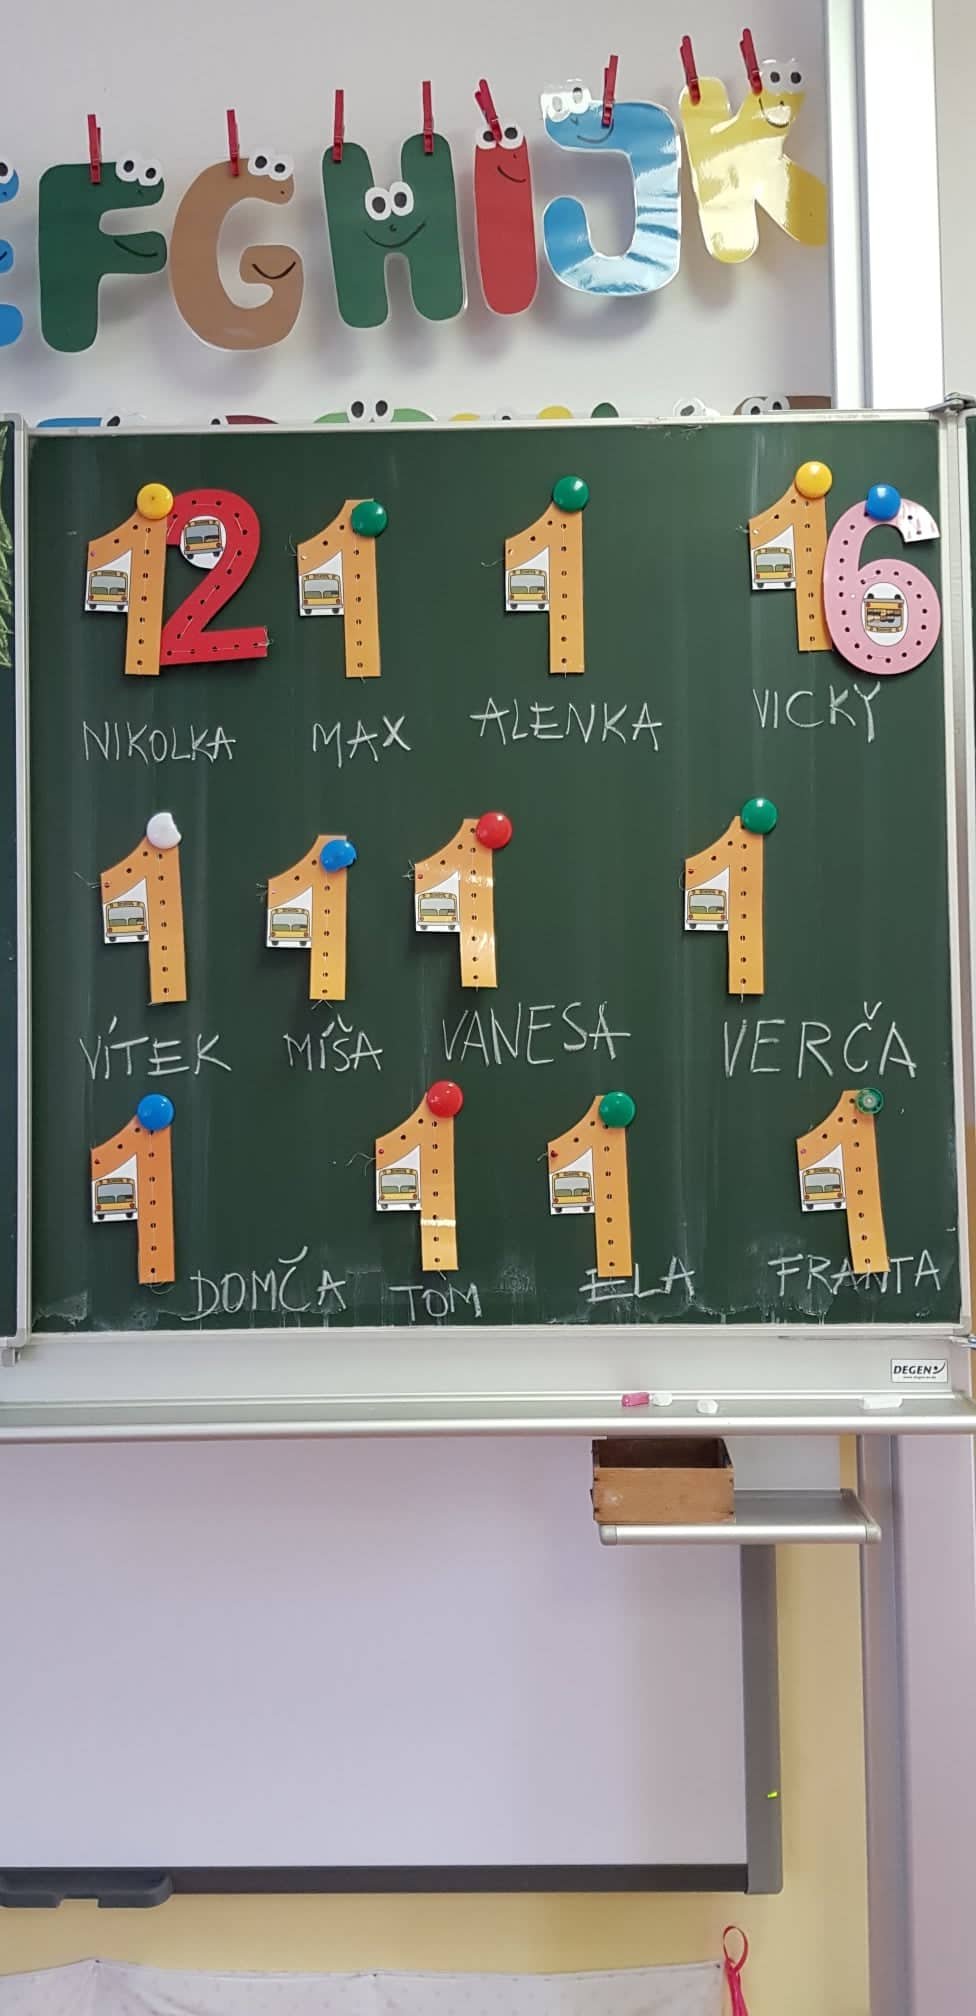 F G H I J K
12 1 1 16
NIKOLKA MAX ALENKA VICKY
1 1 1 1
VÍTEK MÍŠA VANESA VERČA
1 1 1 1
DOMČA TOM ELA FRANTA
DEGEN